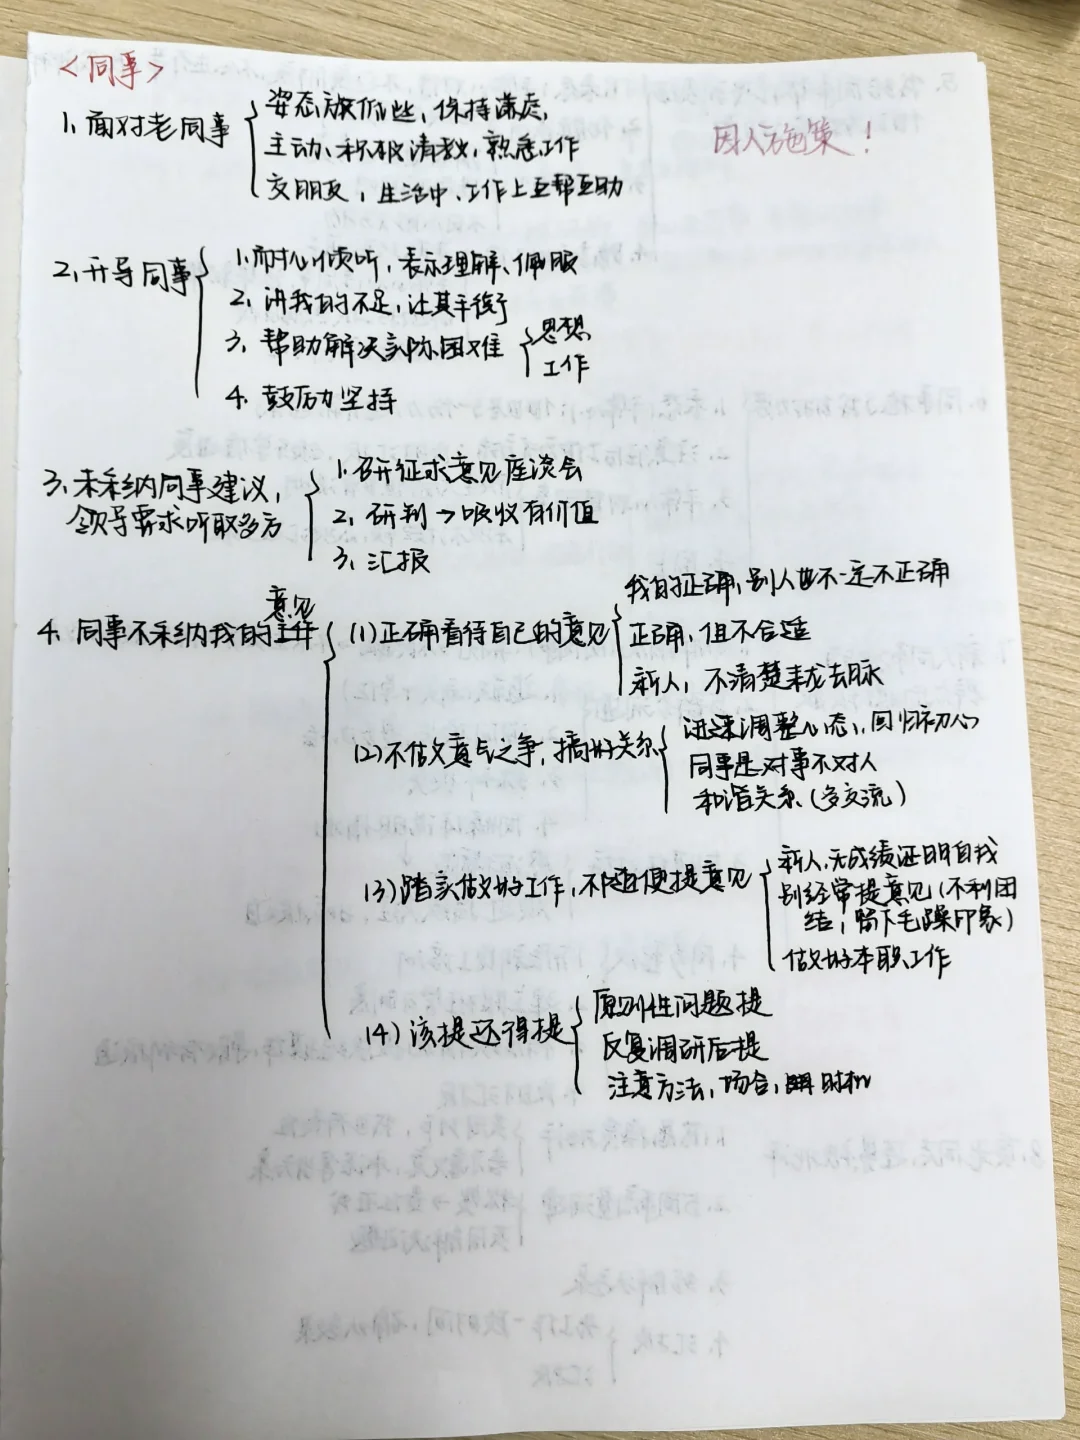 <同事>
因人施策!
1、面对老同事
姿态放低些,保持谦虚,
主动、积极请教,熟悉工作
交朋友,生活中、工作上互帮互助
2、开导同事
1、耐心倾听,表示理解、佩服
2、讲我的不足,让其平衡
3、帮助解决实际困难
思想
工作
4、鼓励坚持
3、未采纳同事建议,
领导需求听取多方
1、研征求意见座谈会
2、研判→吸收有价值
3、汇报
意见
4、同事不采纳我的
(1)正确看待自己的意见
我的正确,别人也不一定不正确
正确,但不合适
新人,不清楚来龙去脉
(2)不做意气之争,搞好关系
迅速调整心态,回归初心
同事是对事不对人
和谐关系(多交流)
(3)踏实做好工作,不随便提意见
新人,无成绩证明自我
别经常提意见(不利团
结,留下毛躁印象)
做好本职工作
(4)该提还得提
原则性问题提
反复调研后提
注意方法,场合,时机